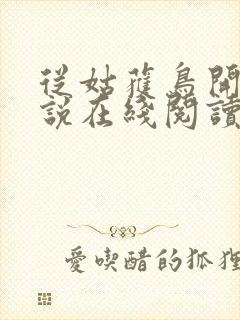 從姑獲鳥開
說在綫閱讀
愛喫醋的狐狸